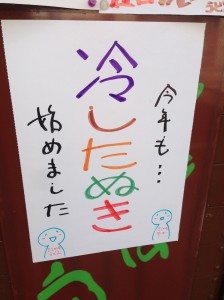 今年も…
冷したぬき
始めました